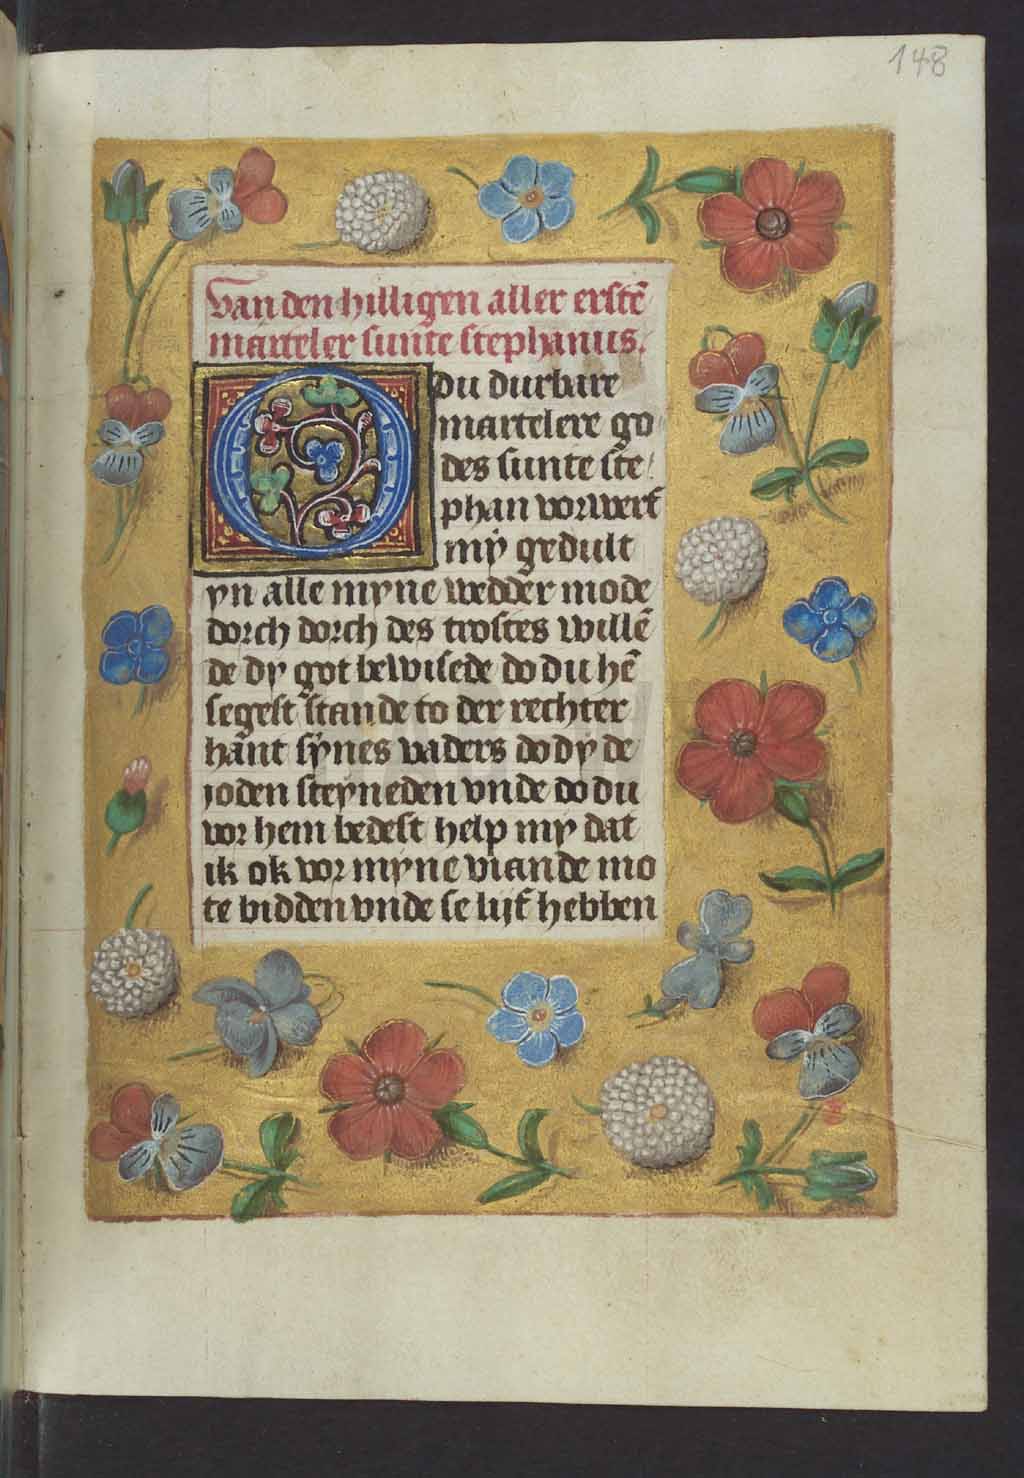 148
Van den hilligen aller erstē
marteler sunte stephanus.
O du durbare
martelere go
des sunte ste/
phan vorwerf
mÿ gedult
yn alle myne wedder mode
dorch dorch des trostes willē
de dy got bewisede do du hē
segest stande to der rechter
hant sÿnes vaders do dÿ de
joden steyneden vnde do du
vor hem bedest help my dat
ik ok vor myne viande mo
te bidden vnde se lijf hebben